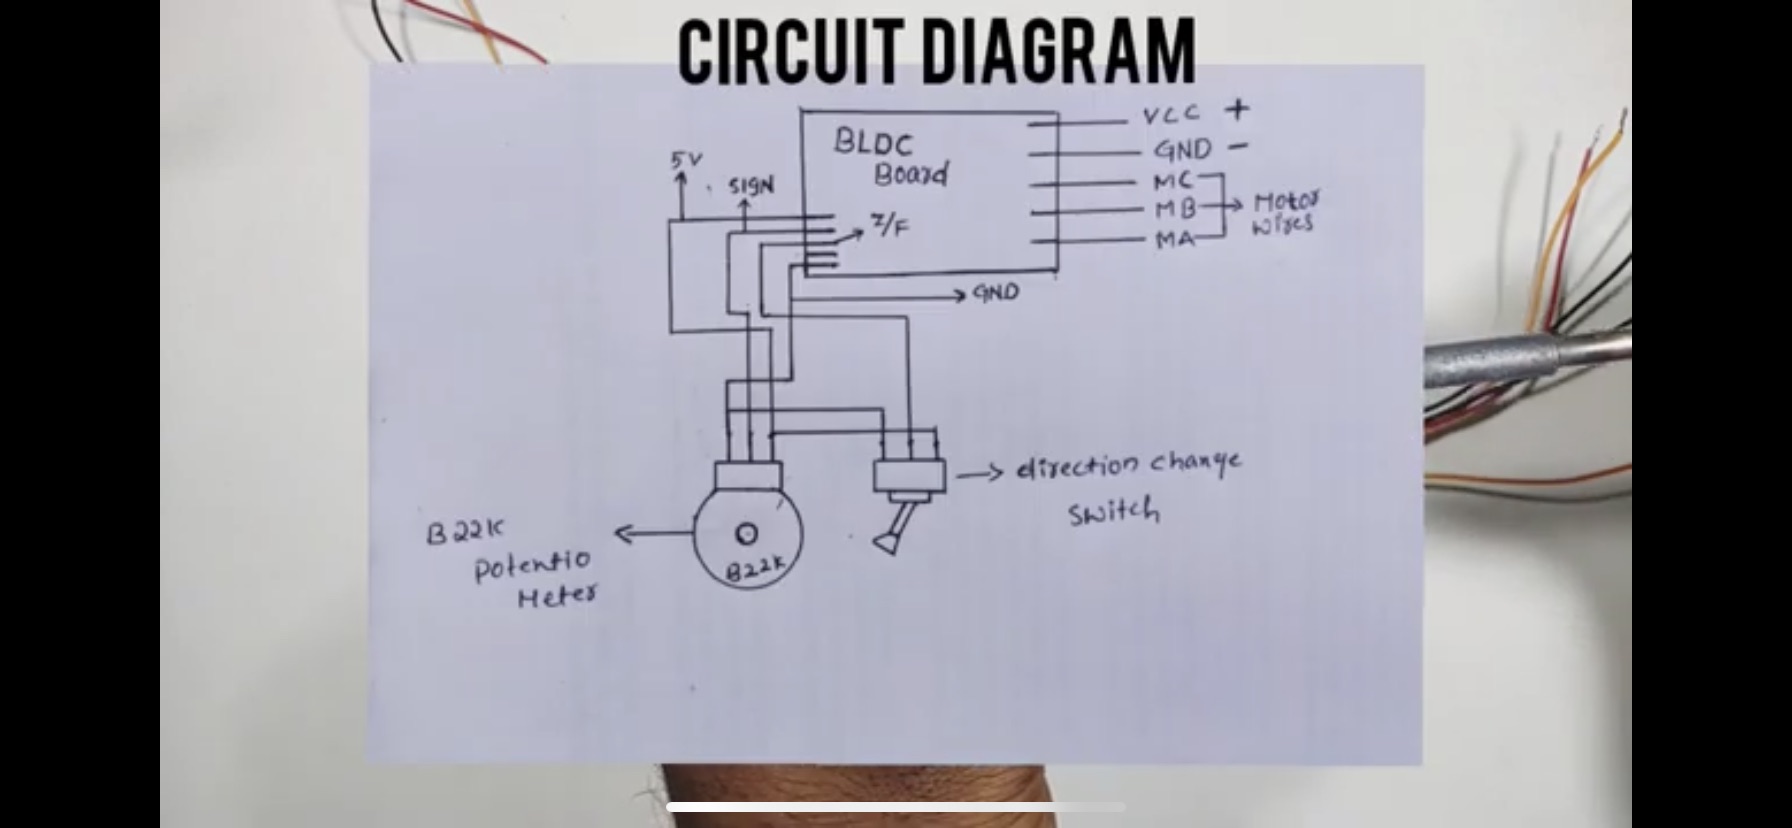 CIRCUIT DIAGRAM
VCC +
BLDC
Board
GND -
5V
SIGN
MC
Z/F
MB
Motor
Wires
MA
GND
direction change
switch
B22K
Potentio
Meter
B22K